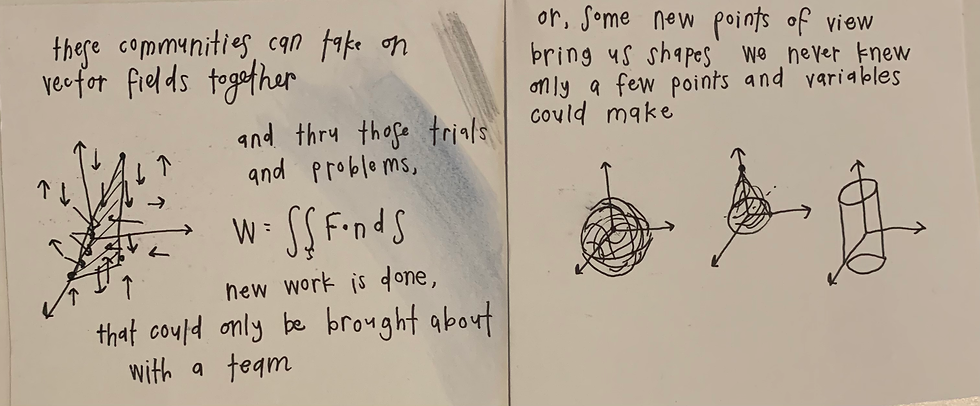 these communities can take on
vector fields together
and thru those trials
and problems,
W = ∬ₛ F·n dS
new work is done,
that could only be brought about
with a team
or, some new points of view
bring us shapes we never knew
only a few points and variables
could make